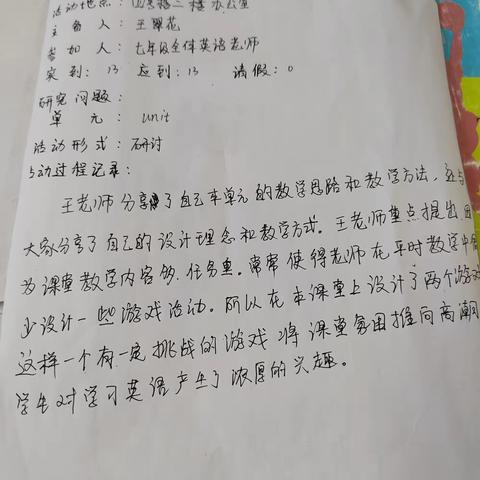 活动地点：四号楼二楼办公室
主备人：王翠花
参加人：七年级全体英语老师
实到：13 应到：13 请假：0
研究问题：
单元：unit
活动形式：研讨
活动过程记录：
王老师分享了自己本单元的教学思路和教学方法，并与
大家分享了自己的设计理念和教学方式。王老师重点提出因
为课堂教学内容多，任务重。常常使得老师在平时教学中
少设计一些游戏活动。所以在本课堂上设计了两个游戏
这样一个有一定挑战的游戏将课堂氛围推向高潮
学生对学习英语产生了浓厚的兴趣。